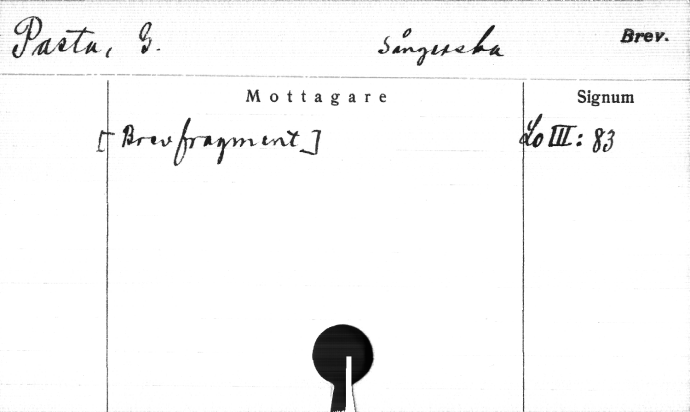 Pasta, G. Sångerska Brev.
Mottagare Signum
[Brevfragment] Lo III: 83